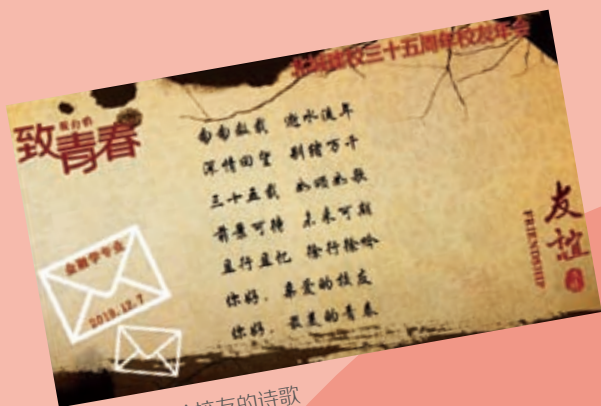 三十五周年校友年会
致我们的青春
匆匆数载 逝水流年
深情回望 别绪万千
三十五载 如颂如歌
前景可待 未来可期
且行且忆 徐行徐吟
你好，亲爱的校友
你好，最美的青春
友谊
FRIENDSHIP
金融学专业
2019.12.7
友的诗歌